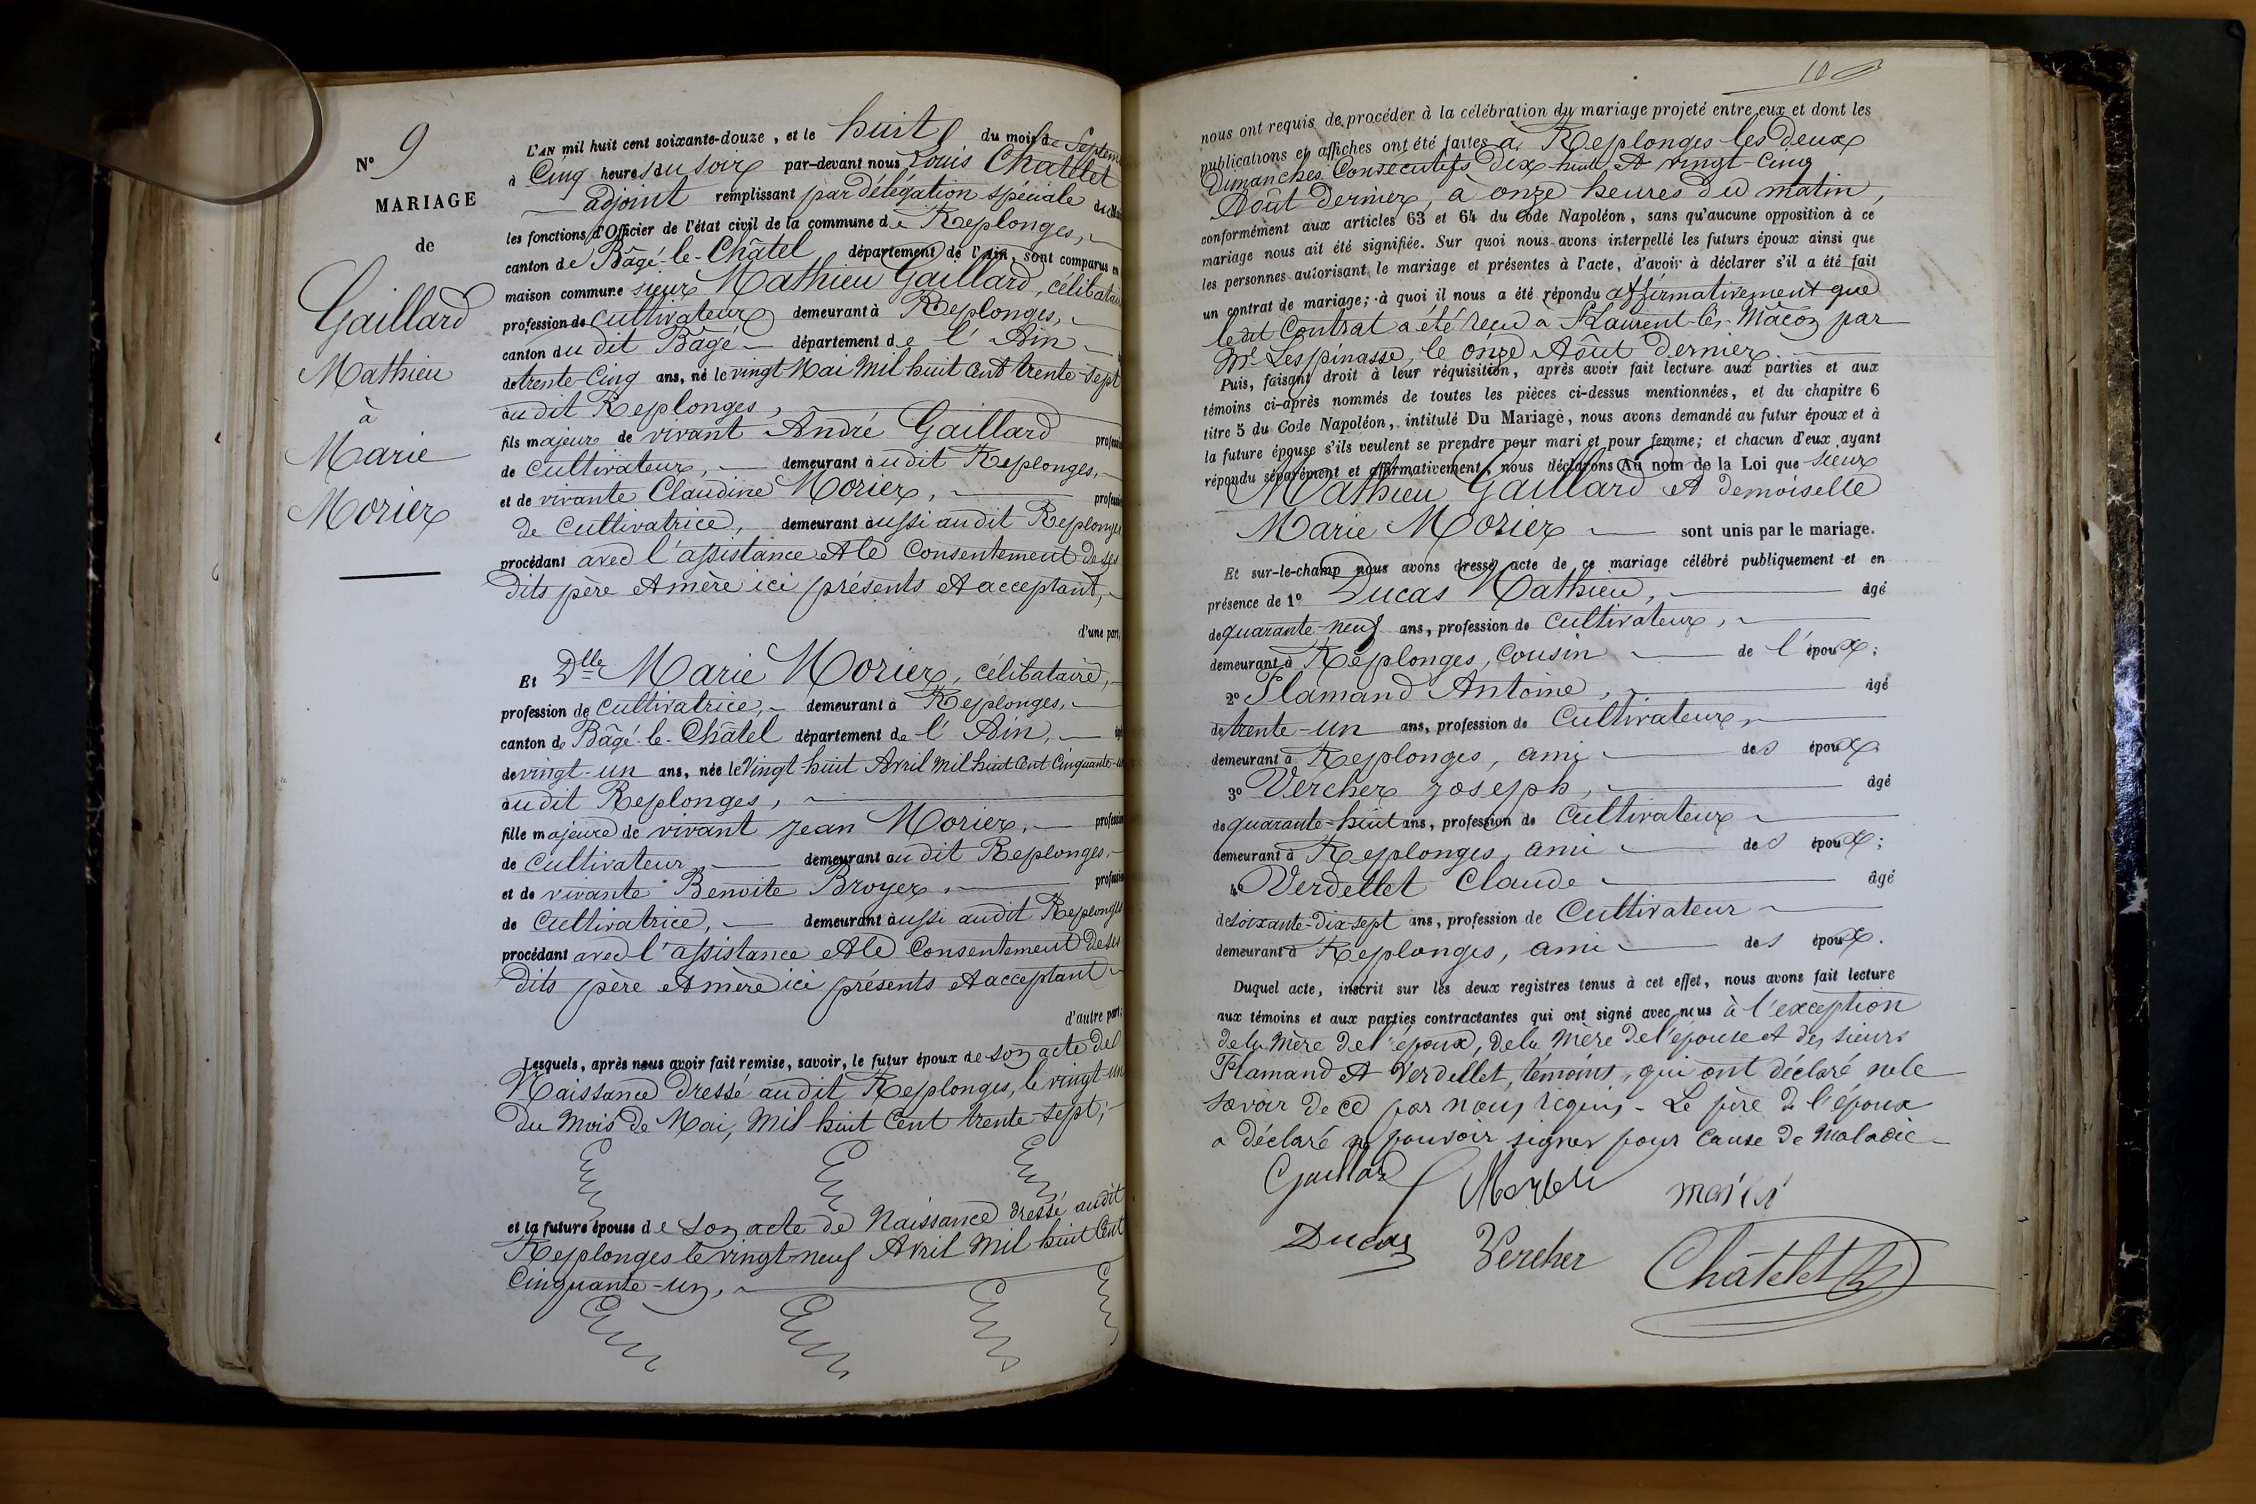 N° 9
MARIAGE
de
Gaillard
Mathieu
à
Marie
Morier
L'AN mil huit cent soixante-douze, et le huit du mois de Septem
à Cinq heures du soir par-devant nous Louis Châtelet
adjoint remplissant par délégation spéciale du Mai
les fonctions d'Officier de l'état civil de la commune de Replonges,
canton de Bâgé-le-Châtel département de l'Ain, sont comparus en
maison commune sieur Mathieu Gaillard, célibatair
profession de cultivateur demeurant à Replonges,
canton du dit Bâgé département de l'Ain
de trente-Cinq ans, né le vingt Mai Mil huit Cent trente-sept
au dit Replonges,
fils majeur de vivant André Gaillard profession
de cultivateur, demeurant au dit Replonges,
et de vivante Claudine Morier, profession
de Cultivatrice, demeurant aussi au dit Replonges
procédant avec l'assistance et le Consentement de ses
dits père et mère ici présents et acceptant,
d'une part;
Et Dlle Marie Morier, célibataire,
profession de Cultivatrice, demeurant à Replonges,
canton de Bâgé-le-Châtel département de l'Ain, âgé
de vingt-un ans, née le Vingt huit Avril Mil huit Cent Cinquante-un
au dit Replonges,
fille majeure de vivant Jean Morier, profession
de Cultivateur, demeurant au dit Replonges,
et de vivante Benoite Broyer, profession
de Cultivatrice, demeurant aussi au dit Replonges
procédant avec l'assistance et le Consentement de ses
dits père et mère ici présents et acceptant
d'autre part;
Lesquels, après nous avoir fait remise, savoir, le futur époux de son acte de
Naissance dressé au dit Replonges, le vingt-un
du Mois de Mai, Mil huit Cent trente-sept;
et la future épouse de son acte de Naissance dressé au dit
Replonges le vingt-neuf Avril Mil huit Cent
Cinquante-un,
10
nous ont requis de procéder à la célébration du mariage projeté entre eux et dont les
publications et affiches ont été faites à Replonges les deux
Dimanches Consécutifs Dix-huit et vingt-Cinq
Août dernier, à onze heures du matin,
conformément aux articles 63 et 64 du Code Napoléon, sans qu'aucune opposition à ce
mariage nous ait été signifiée. Sur quoi nous avons interpellé les futurs époux ainsi que
les personnes autorisant le mariage et présentes à l'acte, d'avoir à déclarer s'il a été fait
un contrat de mariage; à quoi il nous a été répondu affirmativement que
le dit Contrat a été reçu à St Laurent-lès-Mâcon par
Me Lespinasse, le onze Août dernier.
Puis, faisant droit à leur réquisition, après avoir fait lecture aux parties et aux
témoins ci-après nommés de toutes les pièces ci-dessus mentionnées, et du chapitre 6
titre 5 du Code Napoléon, intitulé Du Mariage, nous avons demandé au futur époux et à
la future épouse s'ils veulent se prendre pour mari et pour femme; et chacun d'eux ayant
répondu séparément et affirmativement, nous déclarons Au nom de la Loi que sieur
Mathieu Gaillard et demoiselle
Marie Morier sont unis par le mariage.
Et sur-le-champ nous avons dressé acte de ce mariage célébré publiquement et en
présence de 1° Ducas Mathieu, âgé
de quarante-neuf ans, profession de Cultivateur,
demeurant à Replonges, cousin de l'époux;
2° Flamand Antoine, âgé
de trente-un ans, profession de Cultivateur,
demeurant à Replonges, ami des époux
3° Vercher Joseph, âgé
de quarante-huit ans, profession de Cultivateur
demeurant à Replonges, ami des époux;
4° Verdellet Claude âgé
de soixante-dix-sept ans, profession de Cultivateur
demeurant à Replonges, ami des époux.
Duquel acte, inscrit sur les deux registres tenus à cet effet, nous avons fait lecture
aux témoins et aux parties contractantes qui ont signé avec nous à l'exception
de la Mère de l'époux, de la Mère de l'épouse et des sieurs
Flamand et Verdellet, témoins, qui ont déclaré ne le
savoir de ce par nous requis. Le père de l'époux
a déclaré ne pouvoir signer pour Cause de Maladie
Gaillard
Ducas Vercher Châtelet